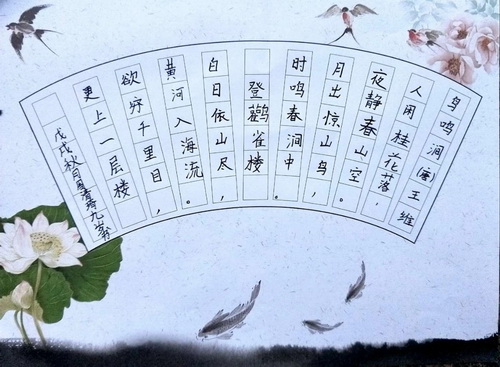 鸟鸣涧(唐)王维
人闲桂花落,
夜静春山空。
月出惊山鸟,
时鸣春涧中。
登鹳雀楼
白日依山尽,
黄河入海流。
欲穷千里目,
更上一层楼
戊戌秋月 九岁书